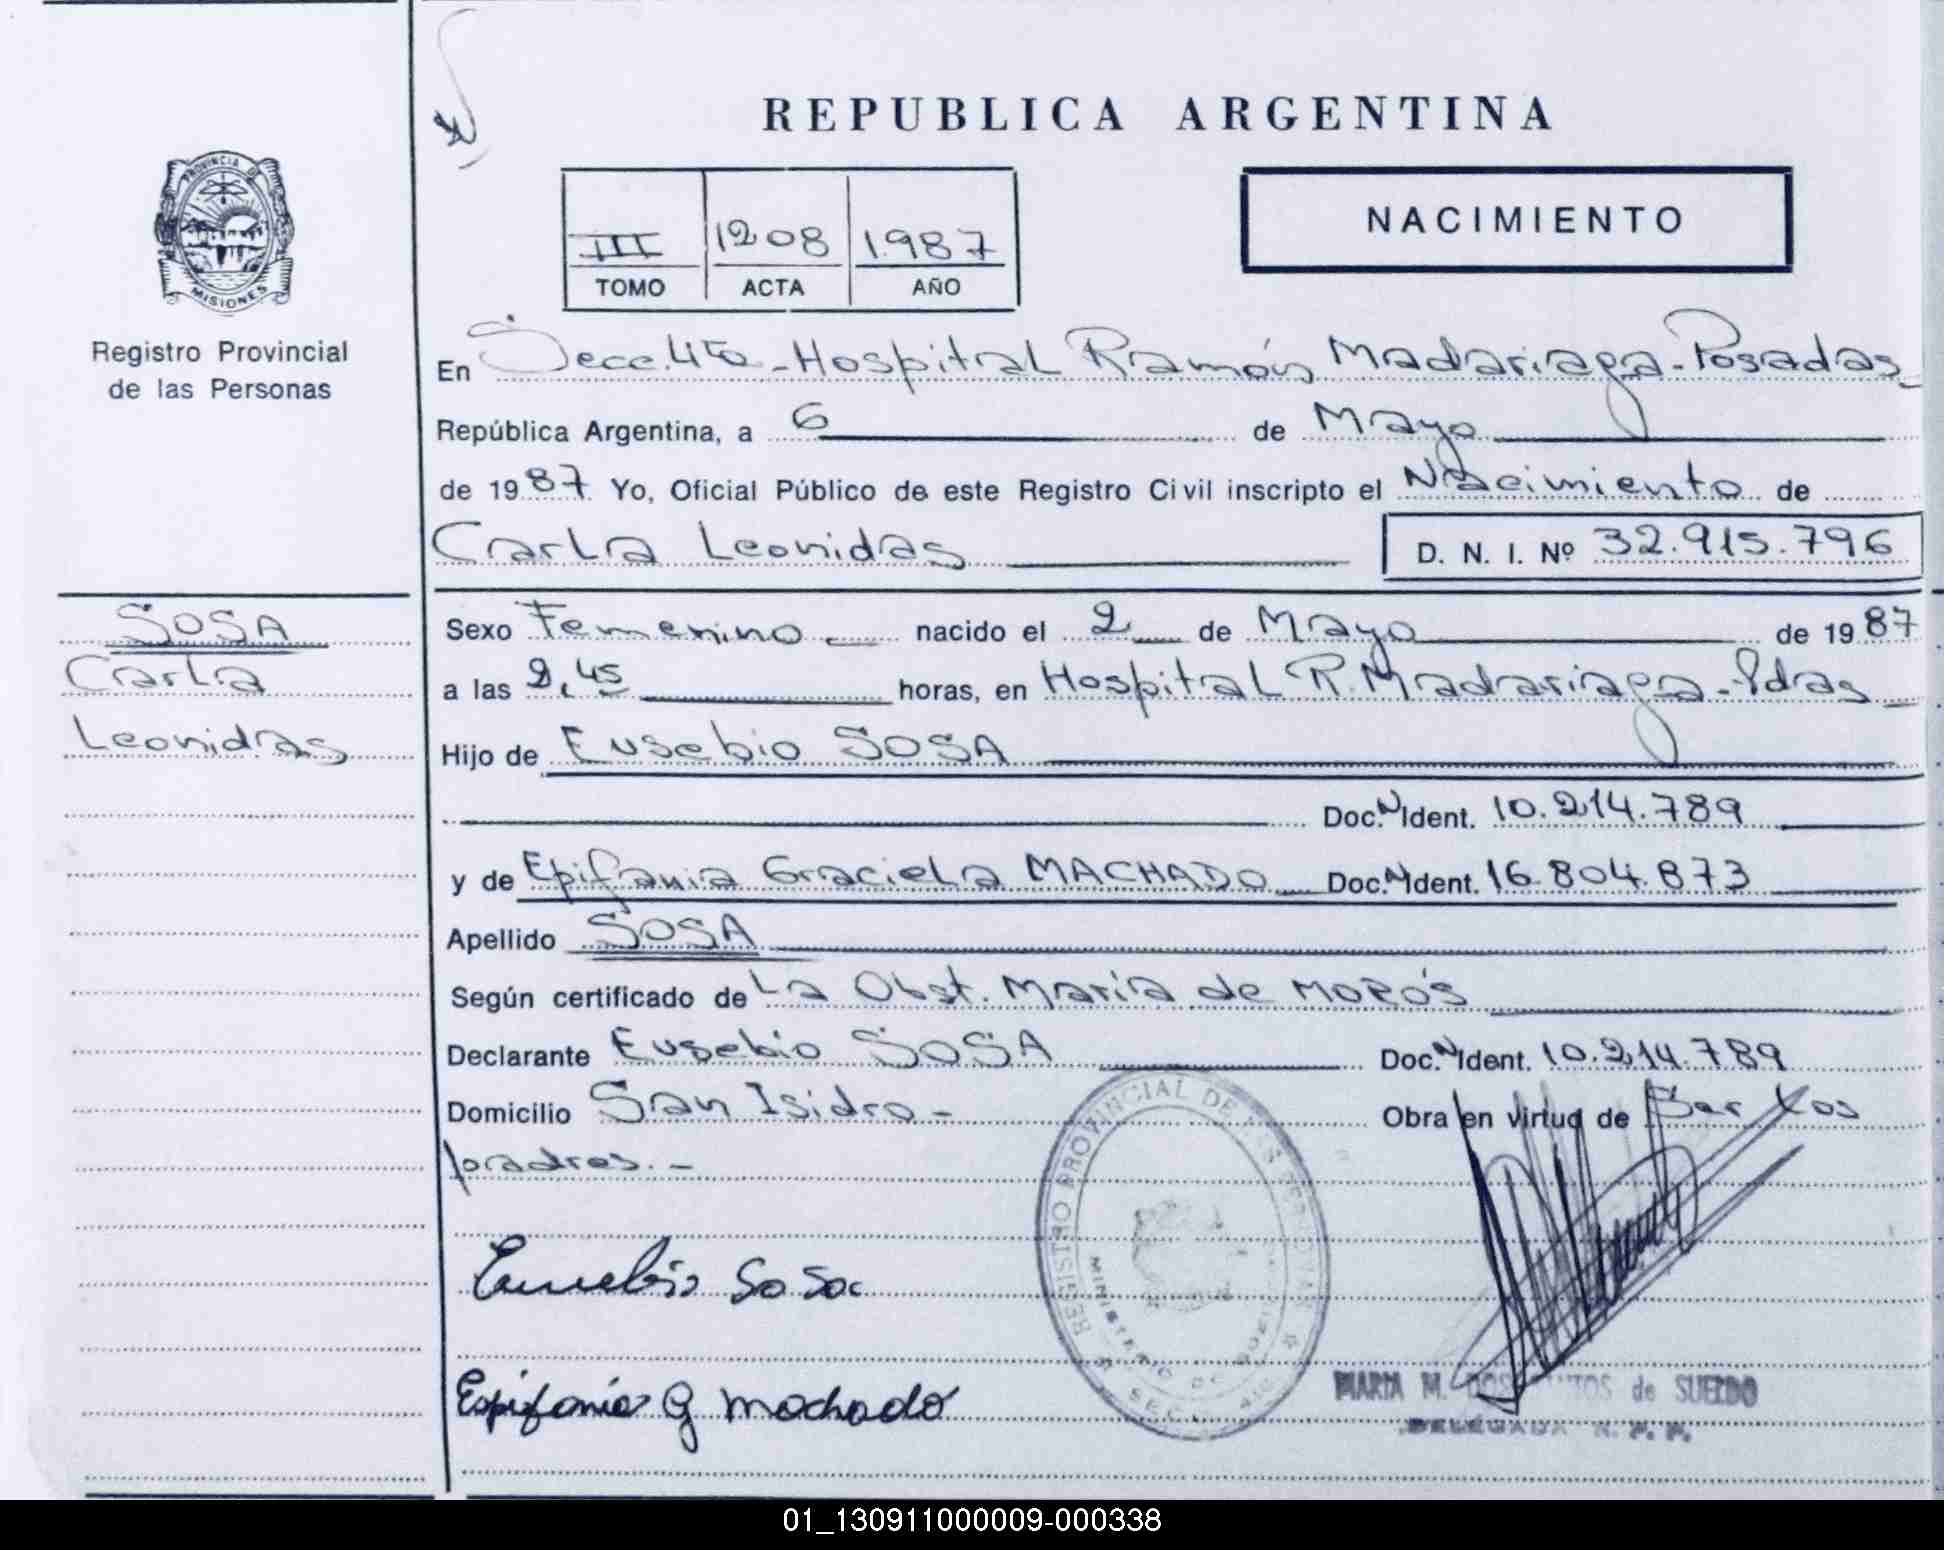 REPUBLICA ARGENTINA
PROVINCIA DE
MISIONES
Registro Provincial
de las Personas
NACIMIENTO
III 1208 1.987
TOMO ACTA AÑO
En Secc. 4ta - Hospital Ramón Madariaga - Posadas
República Argentina, a 6 de Mayo
de 1987 Yo, Oficial Público de este Registro Civil inscripto el Nacimiento de
Carla Leonidas D. N. I. Nº 32.915.796
SOSA
Carla
Leonidas
Sexo Femenino nacido el 2 de Mayo de 1987
a las 2,45 horas, en Hospital R. Madariaga - Pdas
Hijo de Eusebio SOSA
Doc. N Ident. 10.214.789
y de Epifania Graciela MACHADO Doc. N Ident. 16.804.873
Apellido SOSA
Según certificado de La Obst. Maria de MOROS
Declarante Eusebio SOSA Doc. N Ident. 10.214.789
Domicilio San Isidro - Obra en virtud de Ser los
padres. -
REGISTRO PROVINCIAL DE LAS PERSONAS
MINISTERIO DE
Eusebio Sosa
Epifania G Machado
MARIA M. DOS SANTOS de SUELDO
DELEGADA R. P. P.
01_130911000009-000338